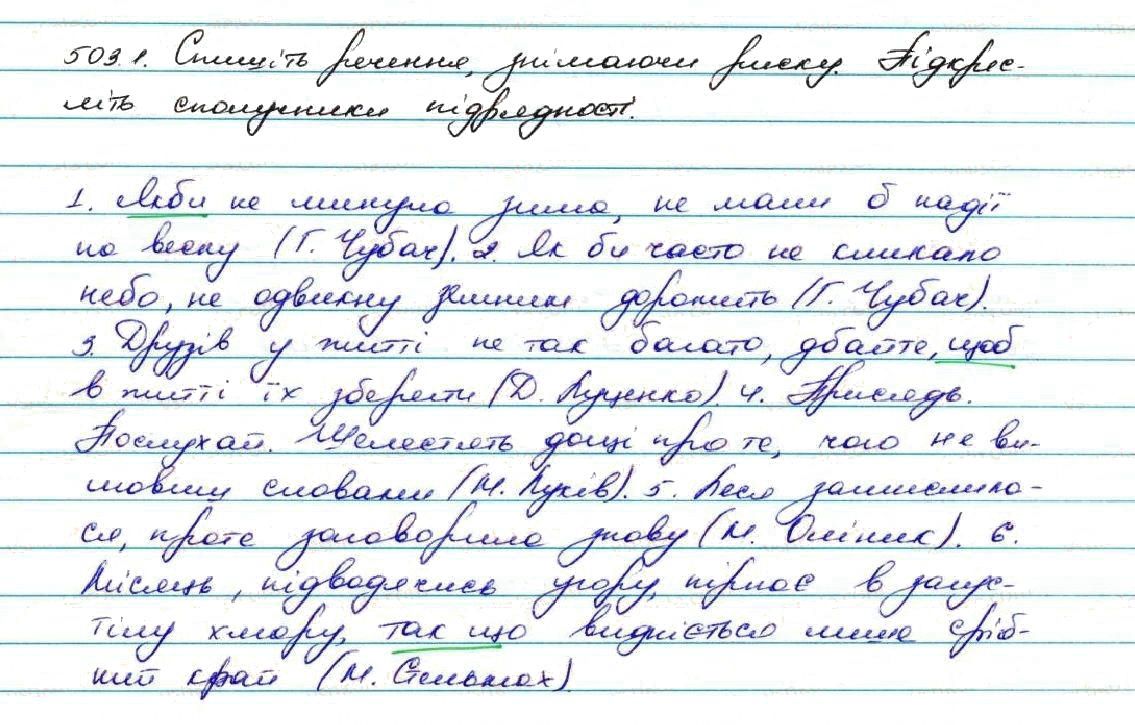 503.1. Спишіть речення, знімаючи риску. Підкрес-
літь сполучники підрядності.
1. Якби не минула зима, не мали б надії
на весну (Г. Чубач). 2. Як би часто не кликало
небо, не одвикну земними дорожить (Г. Чубач).
3. Друзів у житті не так багато, дбайте, щоб
в житті їх зберегти (Д. Луценко). 4. Присядь.
Послухай. Шелестять дощі про те, чого не ви-
мовиш словами (М. Луків). 5. Леся замислила-
ся, проте заговорила знову (М. Олійник). 6.
Місяць, підводячись угору, пірнає в загус-
тілу хмару, так що видніється лише сріб-
ний край (М. Стельмах).